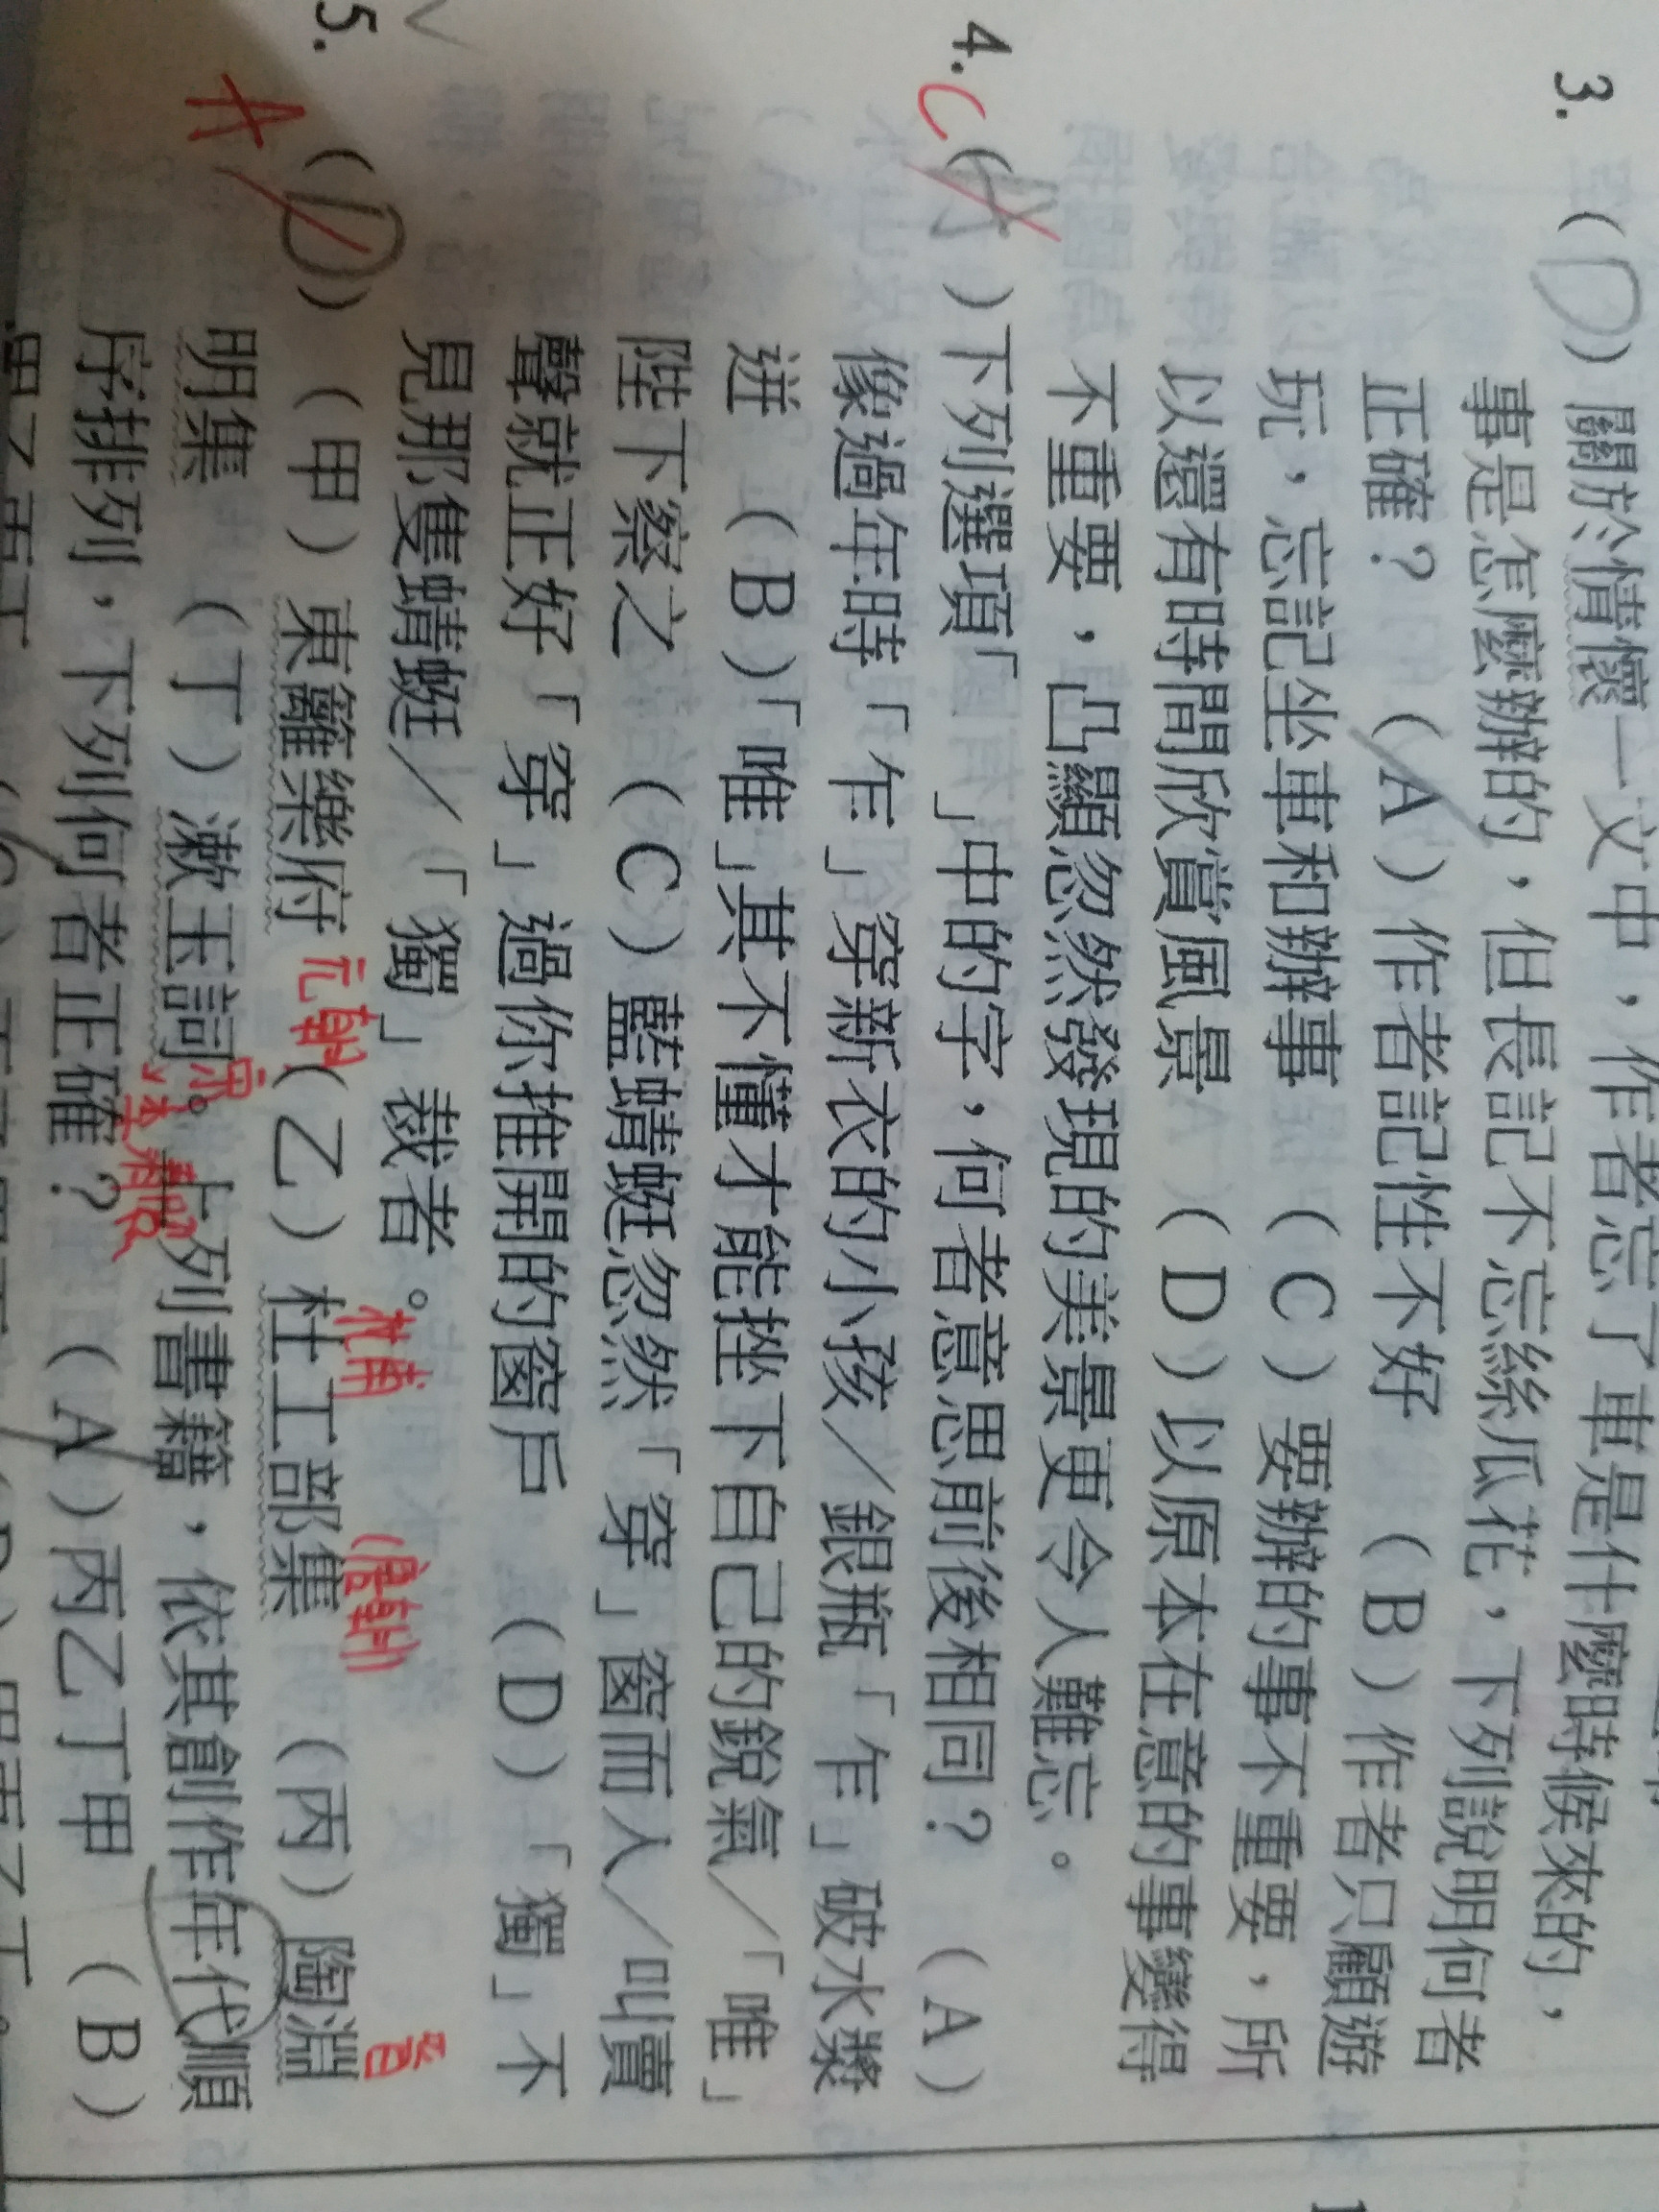 3. (D) 關於情懷一文中，作者忘了車是什麼時候來的，
事是怎麼辦的，但長記不忘絲瓜花，下列說明何者
正確？ (A) 作者記性不好 (B) 作者只顧遊
玩，忘記坐車和辦事 (C) 要辦的事不重要，所
以還有時間欣賞風景 (D) 以原本在意的事變得
不重要，凸顯忽然發現的美景更令人難忘。
4. C (A) 下列選項「 」中的字，何者意思前後相同？ (A)
像過年時「乍」穿新衣的小孩／銀瓶「乍」破水漿
迸 (B)「唯」其不懂才能挫下自己的銳氣／「唯」
陛下察之 (C) 藍蜻蜓忽然「穿」窗而入／叫賣
聲就正好「穿」過你推開的窗戶 (D)「獨」不
見那隻蜻蜓／「獨」裁者。
元朝 杜甫 (唐朝) 晉
5. A (D) (甲) 東籬樂府 (乙) 杜工部集 (丙) 陶淵
明集 (丁) 漱玉詞。上列書籍，依其創作年代順
宋、李清照
序排列，下列何者正確？ (A) 丙乙丁甲 (B)